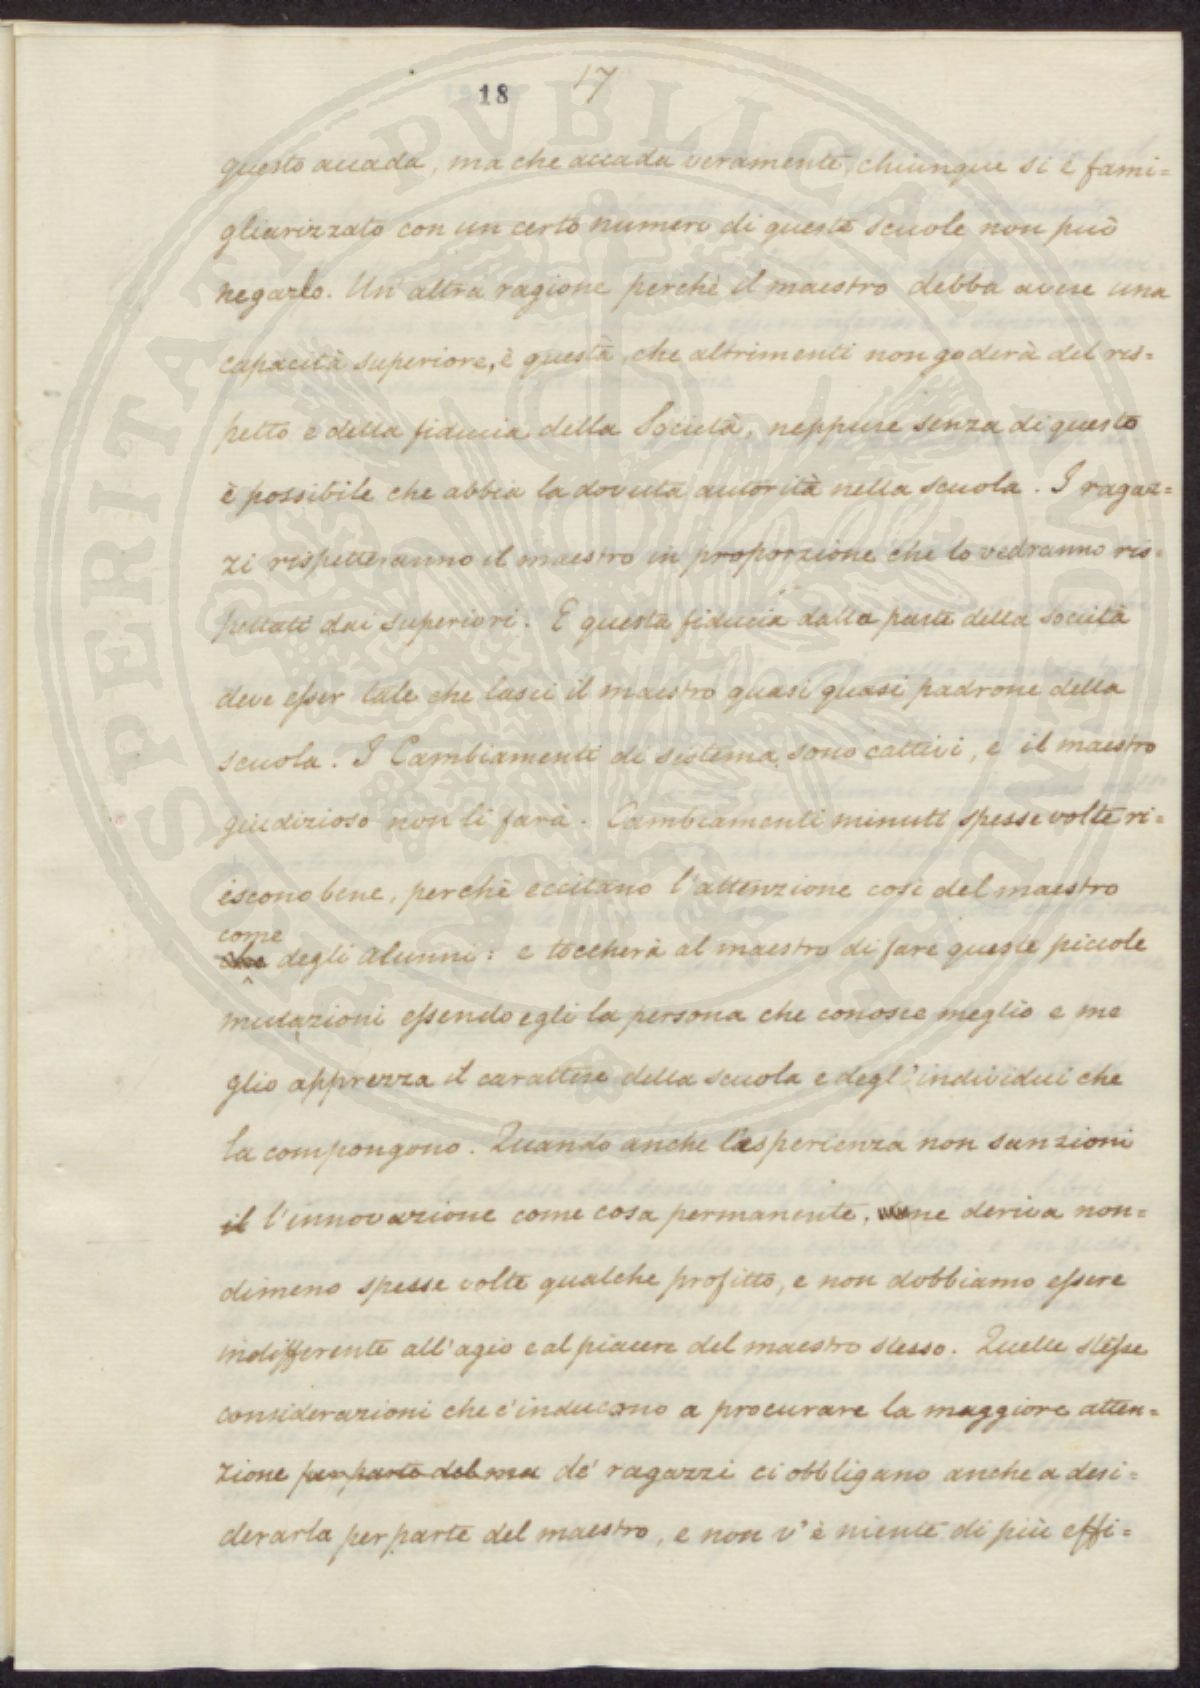 18 17
questo accada, ma che accada veramente, chiunque si è fami=
gliarizzato con un certo numero di queste scuole non può
negarlo. Un'altra ragione perchè il maestro debba avere una
capacità superiore, è questa, che altrimenti non goderà del ris=
petto e della fiducia della Società, neppure senza di questo
è possibile che abbia la dovuta autorità nella scuola. I ragaz=
zi rispetteranno il maestro in proporzione che lo vedranno ris=
pettati dai superiori. E questa fiducia dalla parte della società
deve esser tale che lasci il maestro quasi quasi padrone della
scuola. I Cambiamenti di sistema sono cattivi, e il maestro
giudizioso non li farà. Cambiamenti minuti spesse volte ri=
escono bene, perchè eccitano l'attenzione così del maestro
come
degli alunni: e toccherà al maestro di fare queste piccole
mutazioni essendo egli la persona che conosce meglio e me
glio apprezza il carattere della scuola e degl'individui che
la compongono. Quando anche l'esperienza non sanzioni
il l'innovazione come cosa permanente, ne deriva non=
dimeno spesse volte qualche profitto, e non dobbiamo essere
indifferente all'agio e al piacere del maestro stesso. Quelle stesse
considerazioni che c'inducono a procurare la maggiore atten=
zione per parte del ma de' ragazzi ci obbligano anche a desi=
derarla per parte del maestro, e non v'è niente di più effi=
SOSPERITATI PVBLICAE AVGENDAE